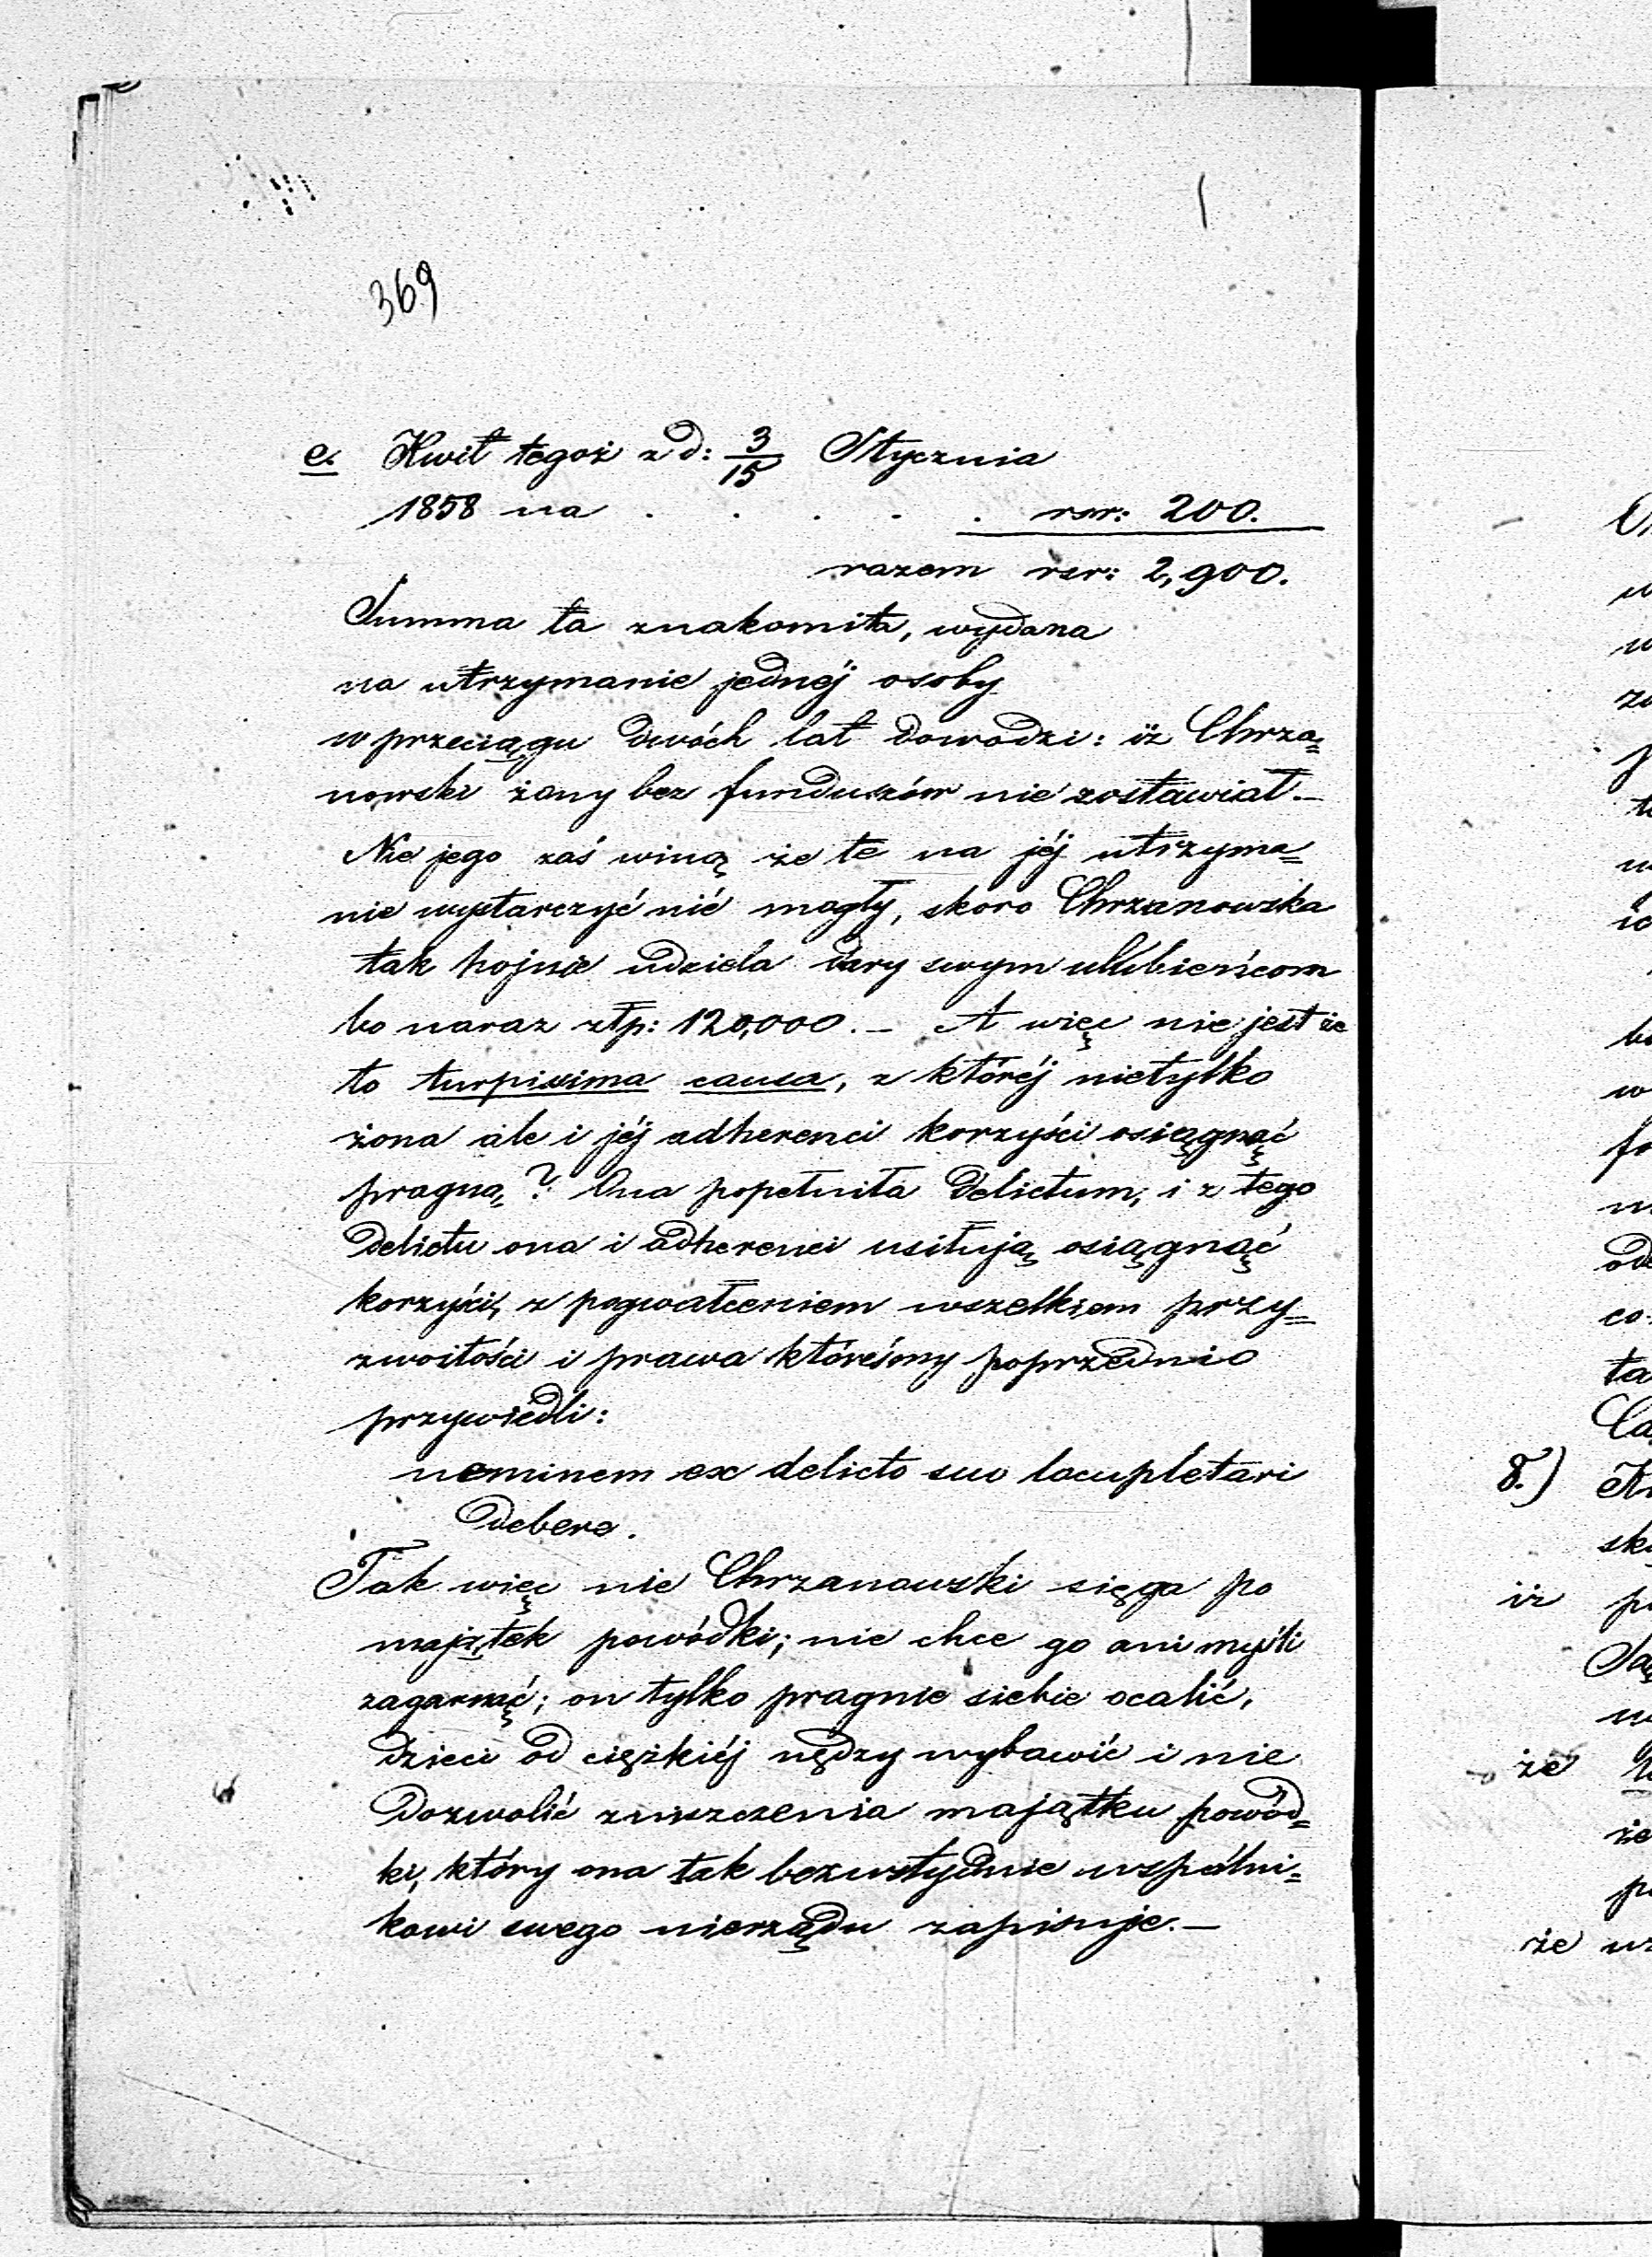 369
e. Kwit tegoż z d: 3/15 Stycznia
1858 na . . . . . rsr: 200.
razem rsr: 2,900.
Summa ta znakomita, wydana
na utrzymanie jednéj osoby
w przeciągu dwóch lat dowodzi: iż Chrza=
nowski żony bez funduszów nie zostawiał.—
Nie jego zaś winą że te na jéj utrzyma=
nie wystarczyć nié mogły, skoro Chrzanowska
tak hojnie udziela dary swym ulubieńcom
bo naraz złp: 120,000.— A więc nie jest że
to turpissima causa, z któréj nietylko
żona ale i jéj adherenci korzyści osiągnąć
pragną? Ona popełniła delictum, i z tego
delictu ona i adherenci usiłują osiągnąć
korzyści, z pogwałceniem wszelkiem przy=
zwoitości i prawa któreśmy poprzednio
przywiedli:
neminem ex delicto suo locupletari
debere.
Tak więc nie Chrzanowski sięga po
majątek powódki; nie chce go ani myśli
zagarnąć; on tylko pragnie siebie ocalić,
dzieci od ciężkiéj nędzy wybawić i nie
dozwolić zniszczenia majątku powód=
ki, który ona tak bezwstydnie wspólni=
kowi swego nierządu zapisuje.—
8.)
iż
że
że